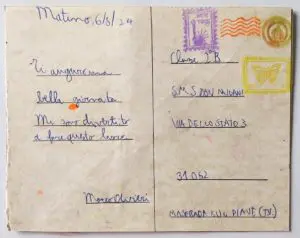 Matino, 6/3/24
Ti auguro una
bella giornata
Mi sono divertito
a fare questo lavoro
Marco Olivieri
Classe 2B
SMS DON MILANI
VIA DELLO STATO 3
31052
MASERADA SUL PIAVE (TV)